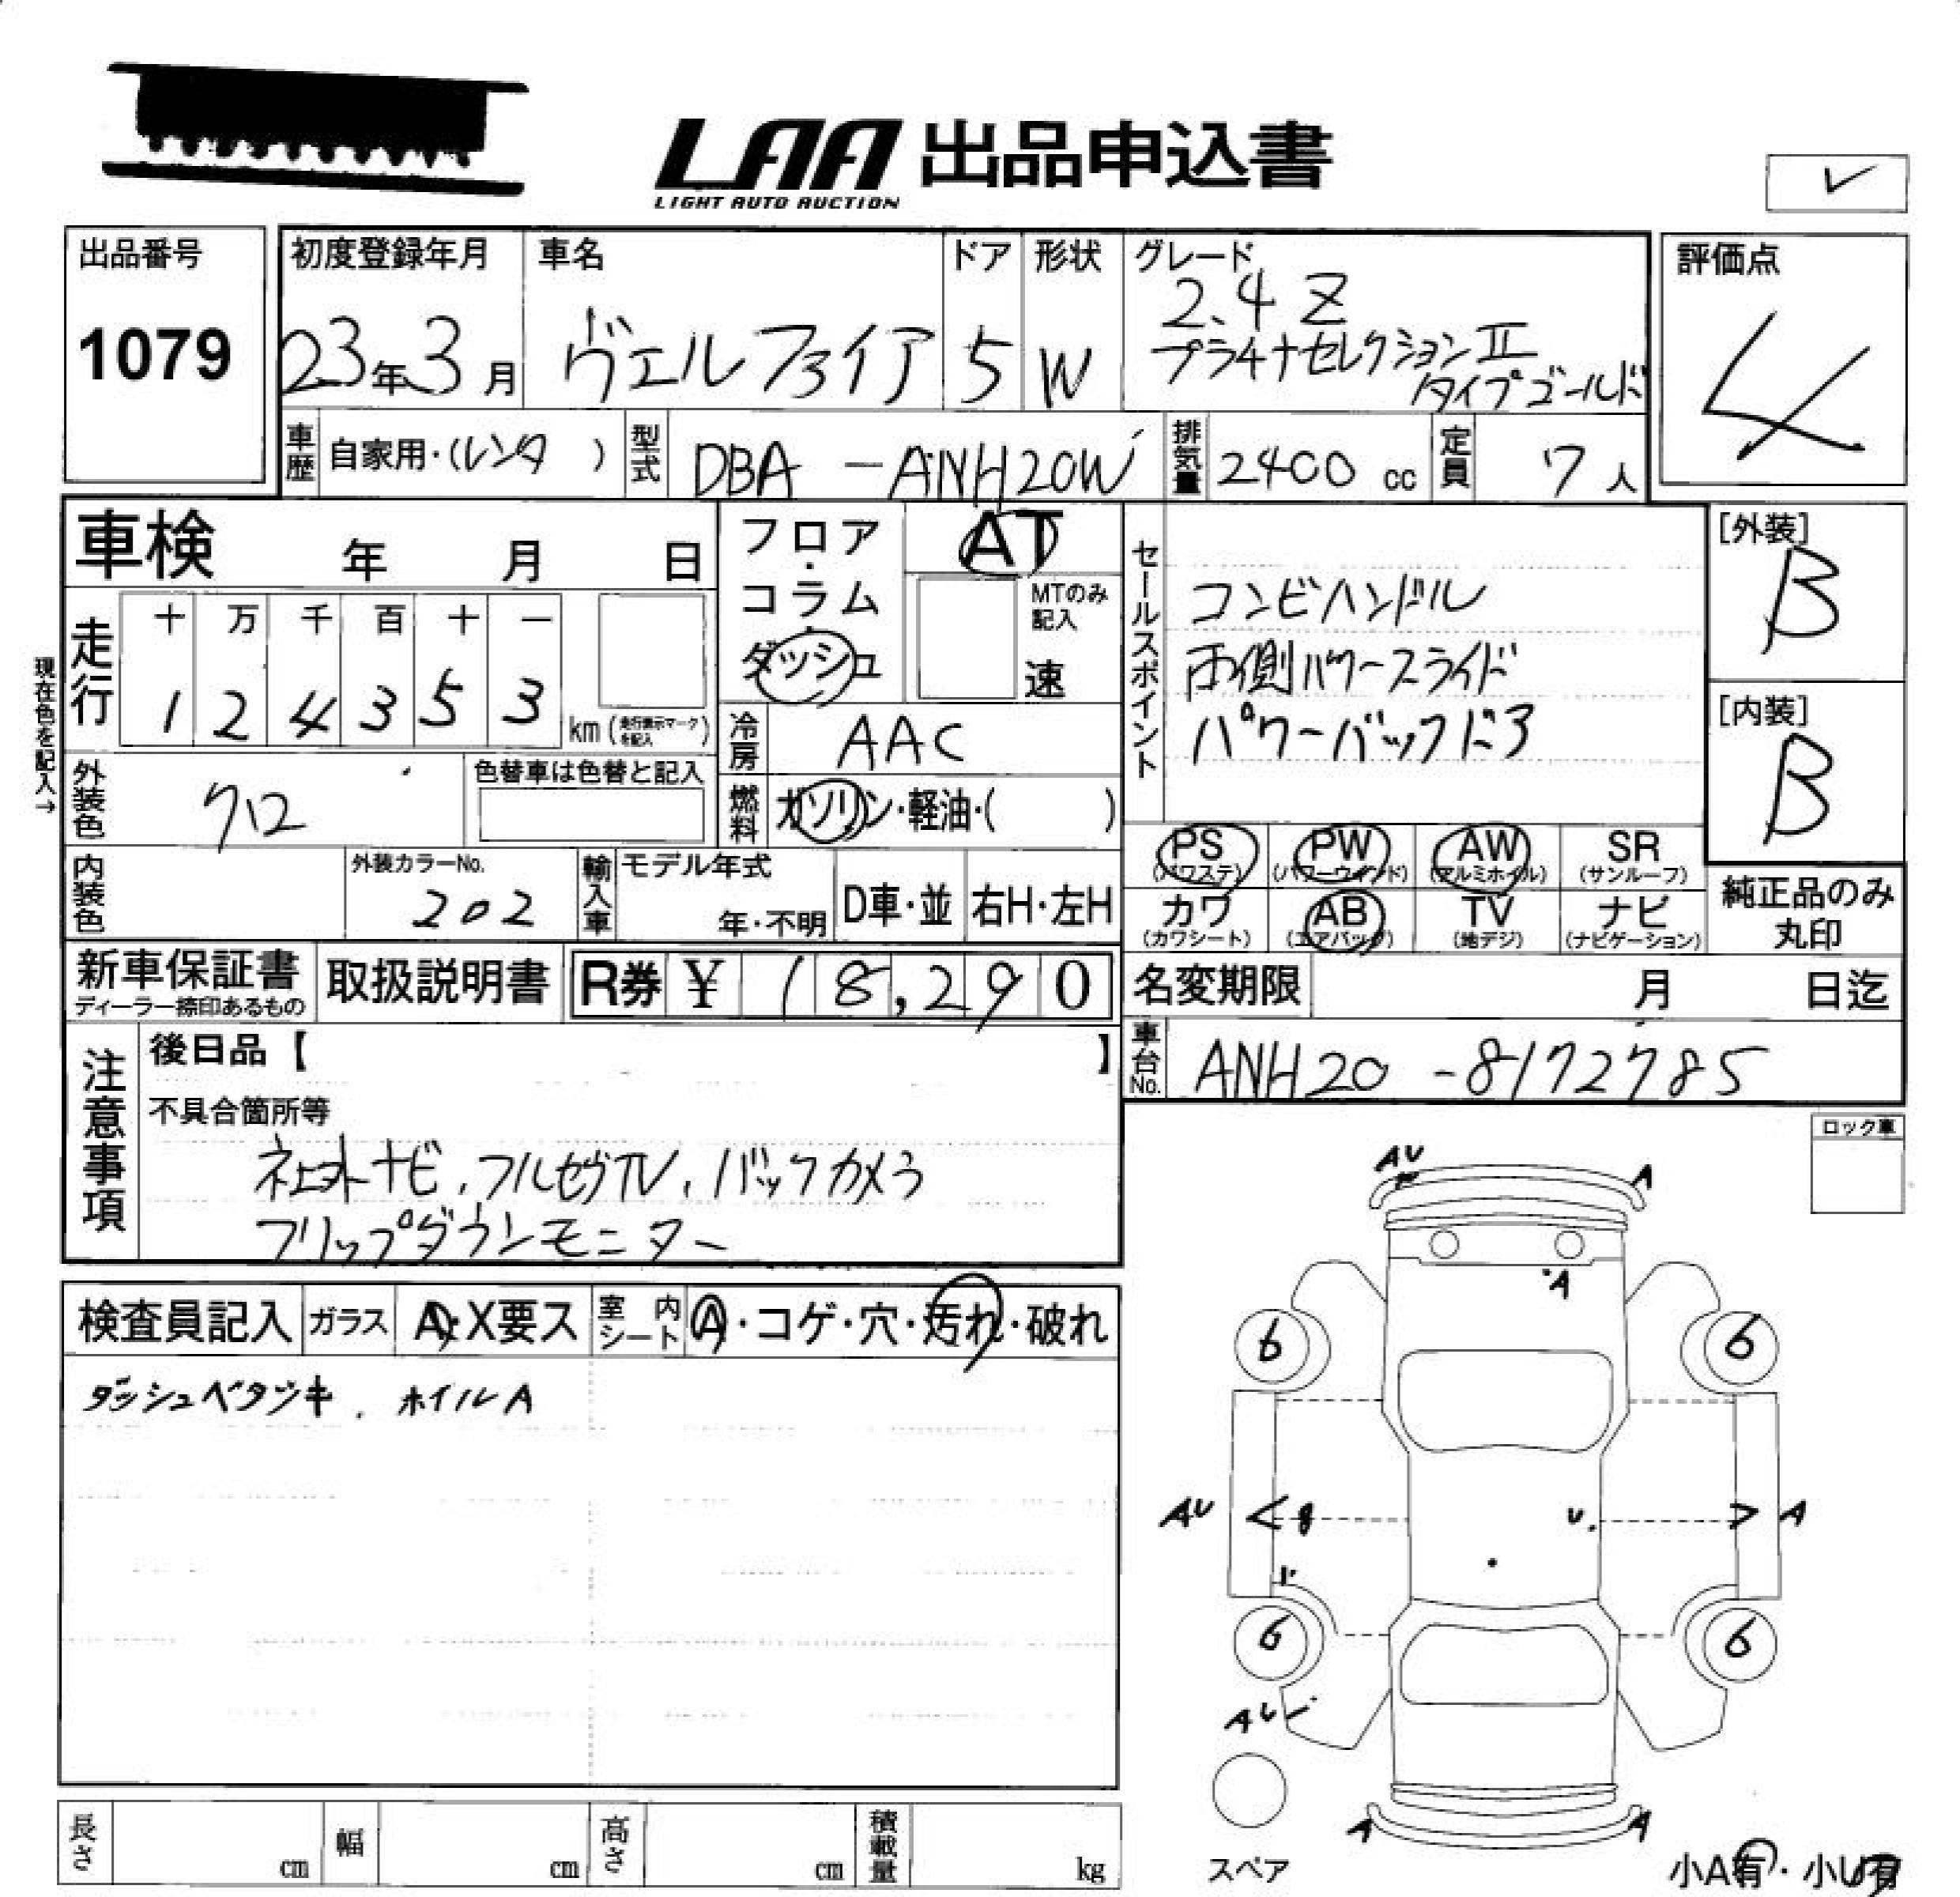 LAA 出品申込書
LIGHT AUTO AUCTION
出品番号
1079
初度登録年月
23年3月
車名
ヴェルファイア
ドア
5
形状
W
グレード
2.4 Z
プラチナセレクションⅡ
タイプゴールド
評価点
4
車歴
自家用・(レンタ )
型式
DBA - ANH20W
排気量
2400 cc
定員
7人
車検 年 月 日
フロア・コラム・ダッシュ
AT
MTのみ記入
速
現在色を記入→
走行
十 万 千 百 十 一
1 2 4 3 5 3
km (走行表示マークを記入)
冷房
AAC
燃料
ガソリン・軽油・( )
セールスポイント
コンビハンドル
両側パワースライド
パワーバックドア
[外装]
B
[内装]
B
外装色
クロ
色替車は色替と記入
内装色
外装カラーNo.
202
輸入車
モデル年式
年・不明
D車・並
右H・左H
PS
(パワステ)
PW
(パワーウインド)
AW
(アルミホイル)
SR
(サンルーフ)
カワ
(カワシート)
AB
(エアバッグ)
TV
(地デジ)
ナビ
(ナビゲーション)
純正品のみ
丸印
新車保証書
ディーラー捺印あるもの
取扱説明書
R券 ¥ 18,290
名変期限 月 日迄
車台No.
ANH20 -8172785
注意事項
後日品【 】
不具合箇所等
社外ナビ,フルセグTV,バックカメラ
フリップダウンモニター
ロック車
検査員記入
ガラス
A・X要ス
室内シート
A・コゲ・穴・汚れ・破れ
ダッシュベタツキ. ホイルA
AU
A
A
6
6
AU
U
A
6
6
AU
スペア
A
A
小A有・小U有
長さ cm
幅 cm
高さ cm
積載量 kg